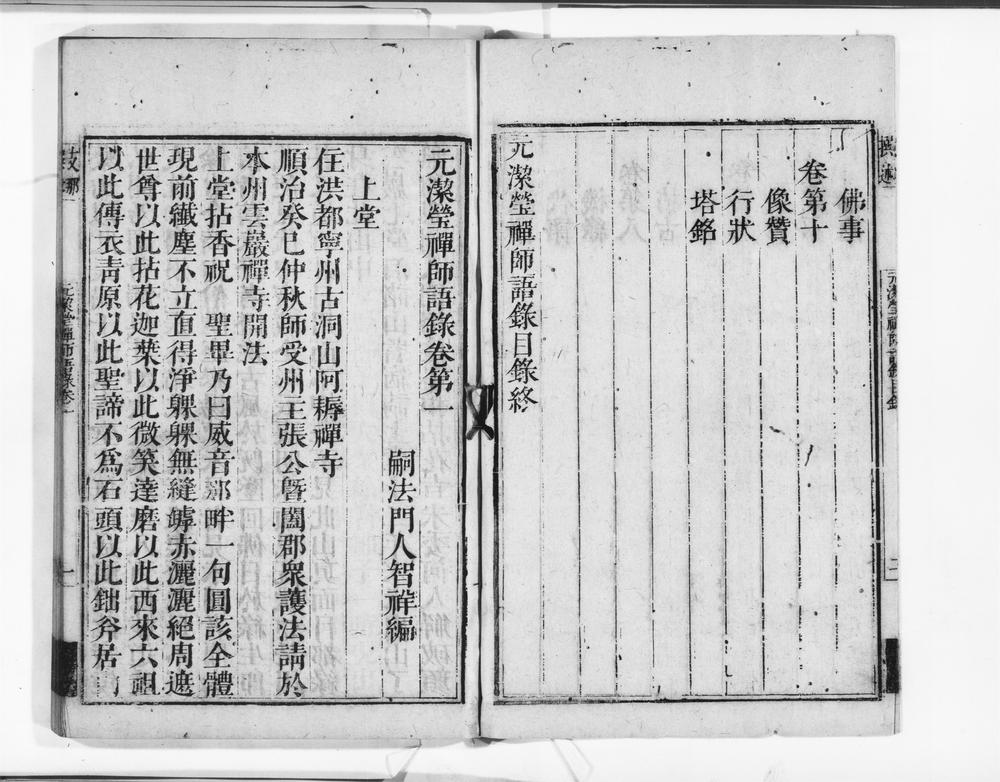 佛事
卷第十
像贊
行狀
塔銘
元潔瑩禪師語錄目錄終
元潔瑩禪師語錄卷第一
嗣法門人智祥編
上堂
住洪都寧州古洞山阿耨禪寺
順治癸巳仲秋師受州主張公曁闔郡衆護法請於
本州雲巖禪寺開法
上堂拈香祝　聖畢乃曰威音那畔一句圓該全體
現前纖塵不立直得淨躶躶無縫罅赤灑灑絕周遮
世尊以此拈花迦葉以此微笑達磨以此西來六祖
以此傳衣靑原以此聖諦不爲石頭以此鈯斧居